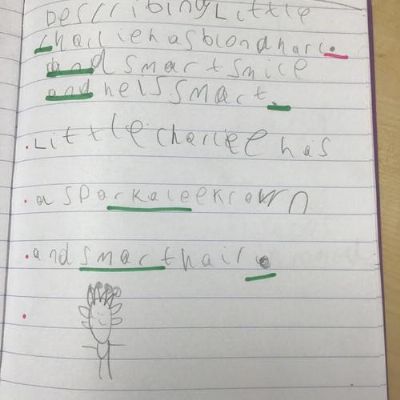 Describing Little
Charlie has blond harc.
and smart smice
and hels smart.
.Little charlee has
.a sparkalee krown
.and smart hair.
.